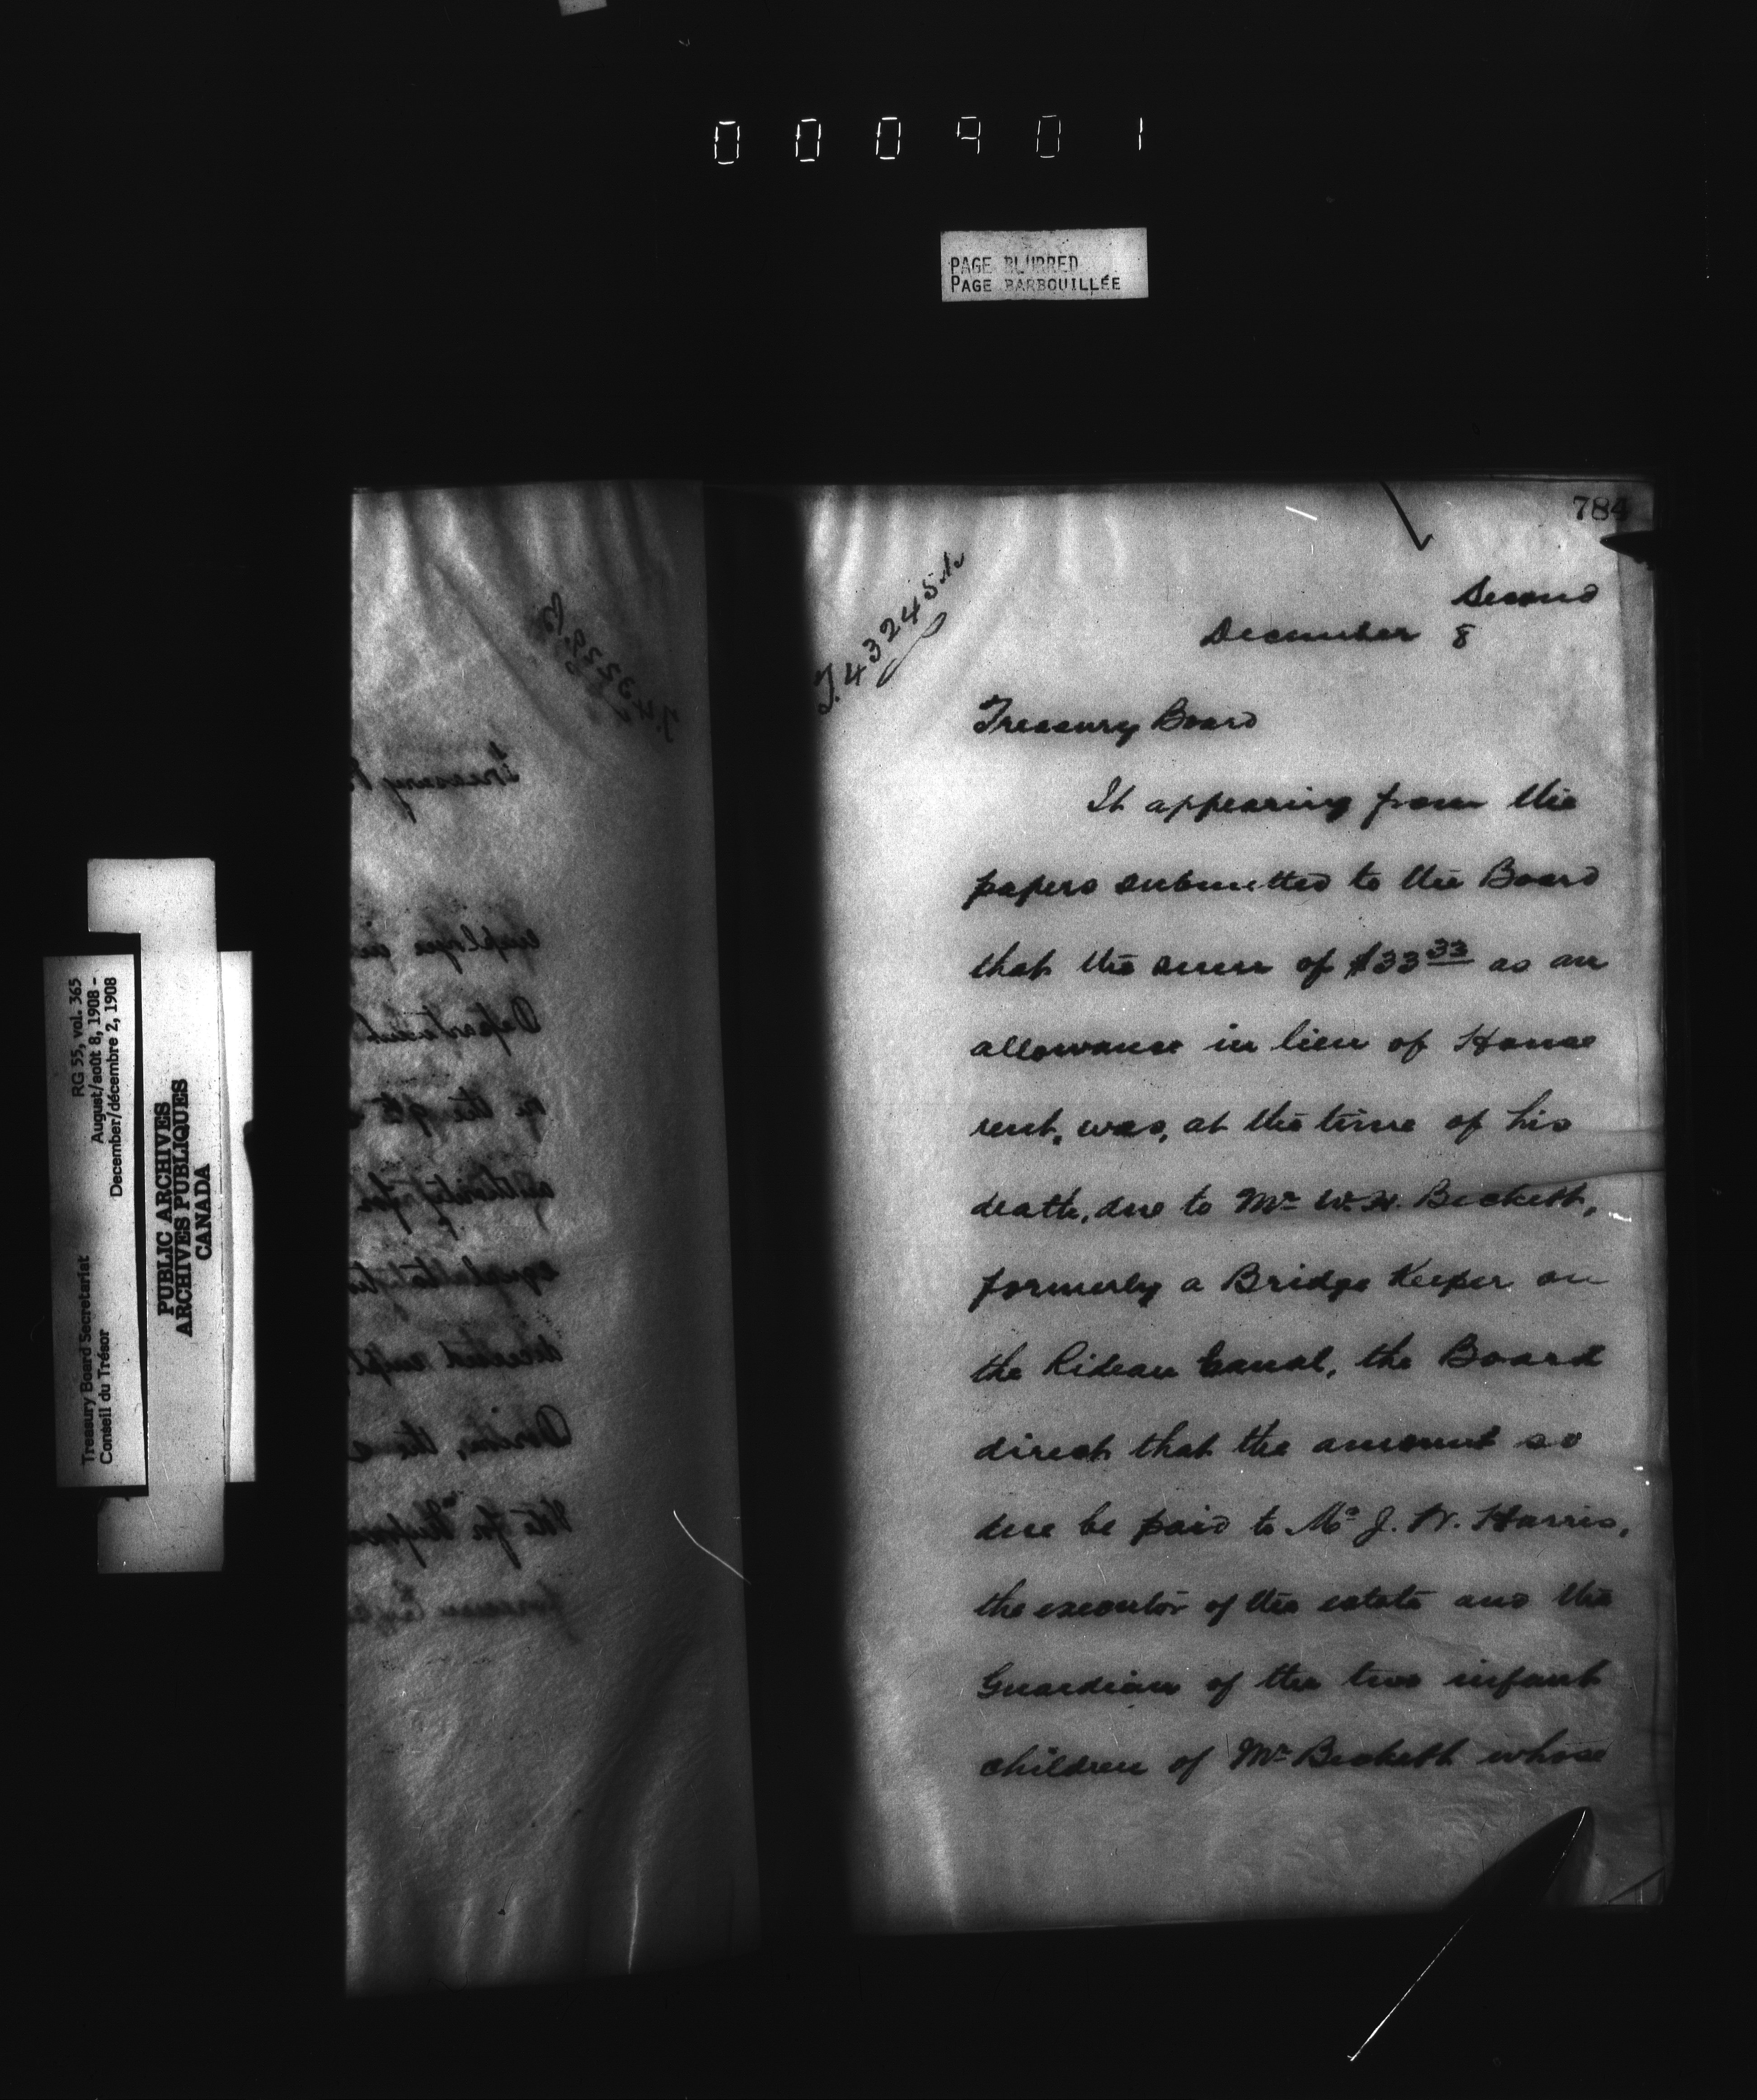 000901
PAGE BLURRED
PAGE BARBOUILLÉE
Treasury Board Secretariat
Conseil du Trésor
RG 55, vol. 365
August/août 8, 1908 -
December/décembre 2, 1908
PUBLIC ARCHIVES
ARCHIVES PUBLIQUES
CANADA
784
Second
December 8
Treasury Board
It appearing from the
papers submitted to the Board
that the sum of $33 33 as an
allowance in lieu of House
rent, was, at the time of his
death, due to Mr W. H. Beckett,
formerly a Bridge Keeper on
the Rideau Canal, the Board
direct that the amount so
due be paid to Mr J. W. Harris,
the executor of the estate and the
Guardian of the two infant
children of Mr Beckett whose